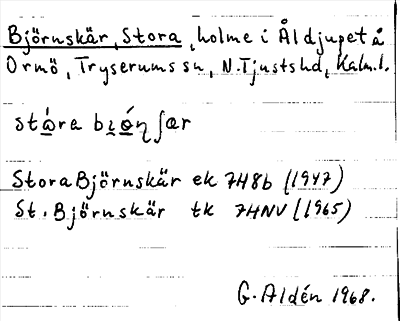 Björnskär, Stora, holme i Åldjupet å
Ormö, Tryserums sn, N. Tjusts hd, Kalm. l.
stɷ́ra bɩɷ́ŋʃær
Stora Björnskär ek 7H8b (1947)
St. Björnskär tk 7HNV (1965)
G. Aldén 1968.